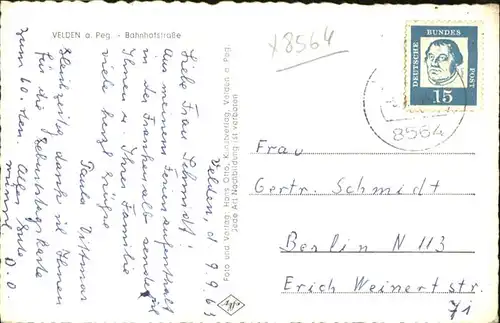 VELDEN a. Peg. - Bahnhofstraße
x8564
DEUTSCHE BUNDES POST
15
8564
Velden, d 9.9.63
Liebe Frau Schmidt!
Aus meinem Ferienaufenthalt
in der Frankenalb sende ich
Ihnen u. Ihrer Familie
viele herzl. Grüße
Paula
Gleichzeitig danke ich Ihnen
für die Geburtstagskarte
zum 60. ten. Alles Gute
D.O
Foto und Verlag: Hans Otto, Kunstverlag, Velden a. Peg.
Jede Art Nachbildung ist verboten
Agfa
Frau
Gertr. Schmidt
Berlin N 113
Erich Weinert str.
71